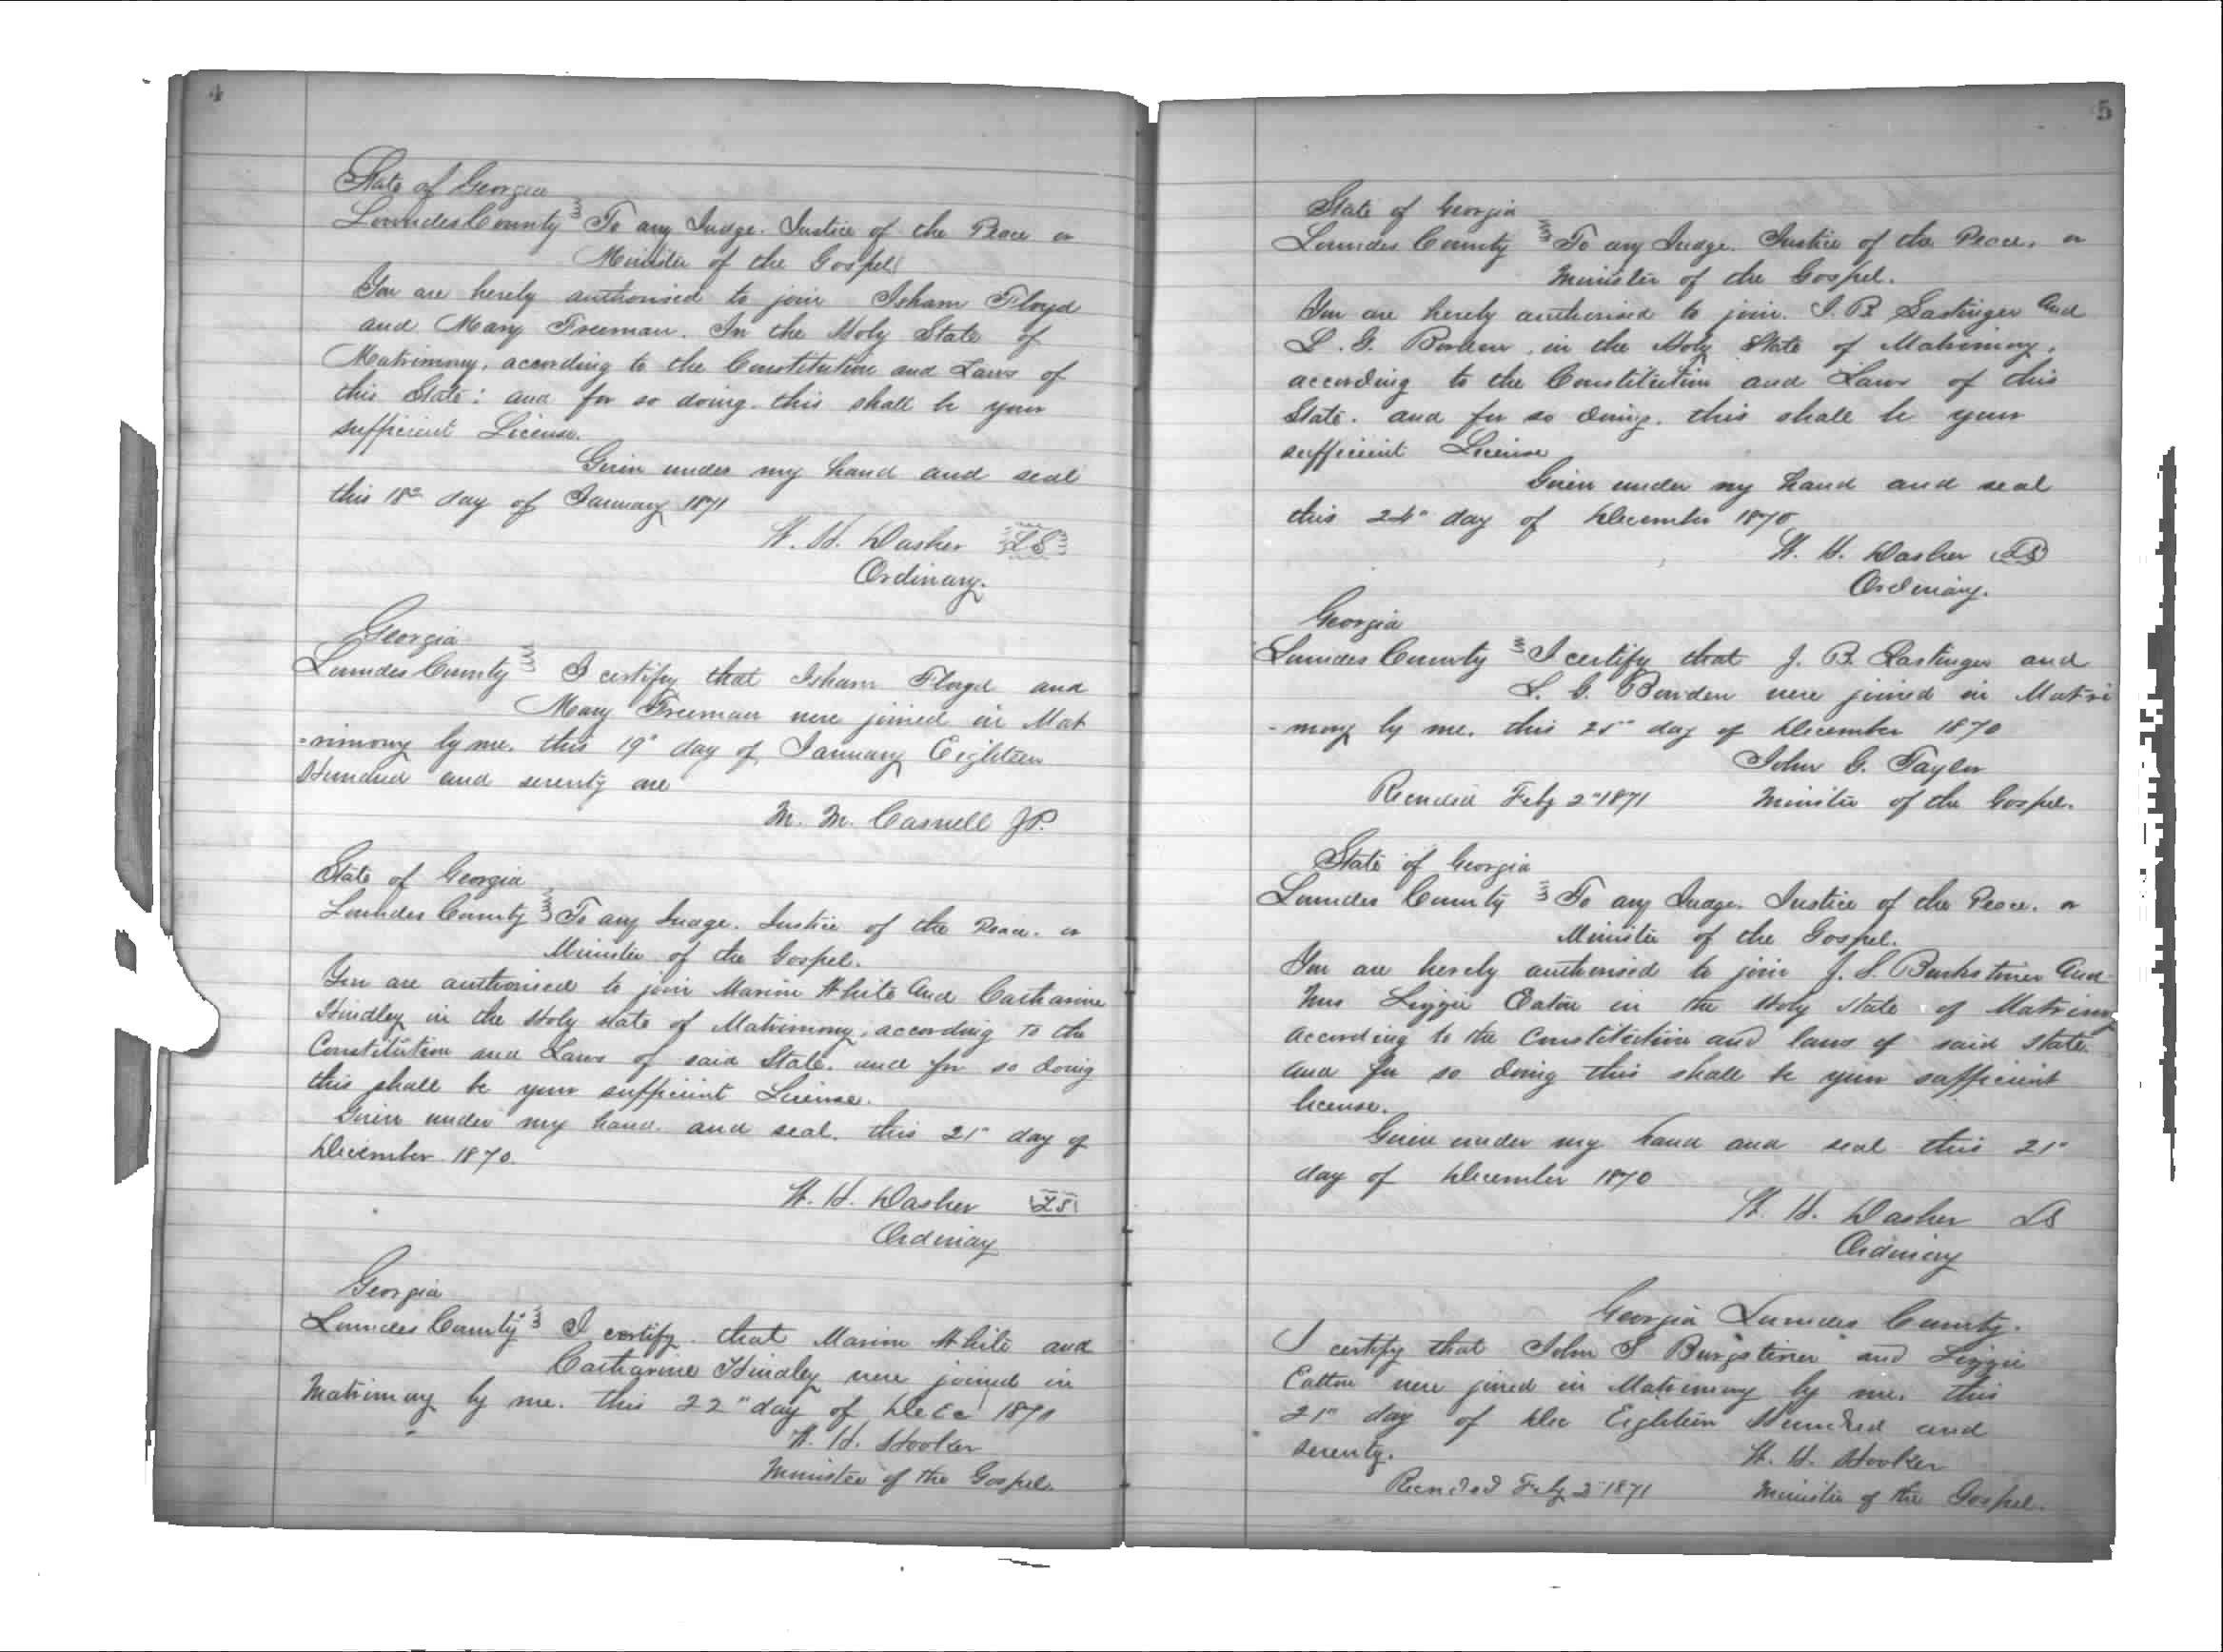 4
State of Georgia
Lowndes County To any Judge. Justice of the Peace or
Minister of the Gospel
You are hereby authorised to join Isham Floyd
and Mary Freeman. In the Holy State of
Matrimony, according to the Constitution and Laws of
this State: and for so doing this shall be your
sufficient License.
Given under my hand and seal
this 18th day of January 1871
W. H. Dasher LS
Ordinary.
Georgia
Lowndes County I certify that Isham Floyd and
Mary Freeman were joined in Mat
-rimony by me. this 19" day of January Eighteen
Hundred and seventy one
M. M. Caswell JP.
State of Georgia
Lowndes County To any Judge. Justice of the Peace. or
Minister of the Gospel.
You are authorised to join Marion White and Catharine
Hindley in the Holy state of Matrimony, according to the
Constitution and Laws of said State. and for so doing
this shall be your sufficient License.
Given under my hand and seal. this 21" day of
December 1870.
W. H. Dasher LS
Ordinay
Georgia
Lowndes County I certify that Marion White and
Catharine Hindley were joined in
Matrimony by me. this 22" day of Dece 1870
W. H. Hooker
Minister of the Gospel.
5
State of Georgia
Lowndes County To any Judge. Justice of the Peace, or
Minister of the Gospel.
You are hereby authorised to join. J. B. Lastinger and
L. G. Bowden in the Holy State of Matrimony.
according to the Constitution and Laws of this
State. and for so doing. this shall be your
sufficient License
Given under my hand and seal
this 24" day of December 1870
W. H. Dasher LS
Ordinary.
Georgia
Lowndes County I certify that J. B. Lastinger and
L. G. Bowden were joined in Matri
-mony by me. this 25" day of December 1870
John G. Taylor
Recorded Feby 2" 1871 Minister of the Gospel.
State of Georgia
Lowndes County To any Judge. Justice of the Peace. or
Minister of the Gospel.
You are hereby authorised to join J. S. Burkstiner and
Miss Lizzie Eaton in the Holy state of Matrimony
according to the Constitution and laws of said state.
and for so doing this shall be your sufficient
license.
Given under my hand and seal this 21"
day of December 1870
W. H. Dasher LS
Ordinary
Georgia Lowndes County.
I certify that John S Burgstiner and Lizzie
Eatton were joined in Matrimony by me. this
21" day of Dec Eighteen Hundred and
seventy.
W. H. Hooker
Recorded Feby 2" 1871 Minister of the Gospel.